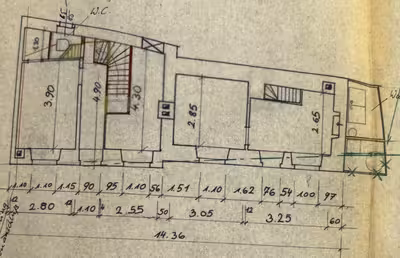 W.C.
3.90
4.90
4.30
2.85
2.65
1.10 1.10 1.15 90 95 1.10 56 1.51 1.10 1.62 76 54 1.00 97
12 2.80 12 1.10 2.55 50 3.05 12 3.25 60
14.36